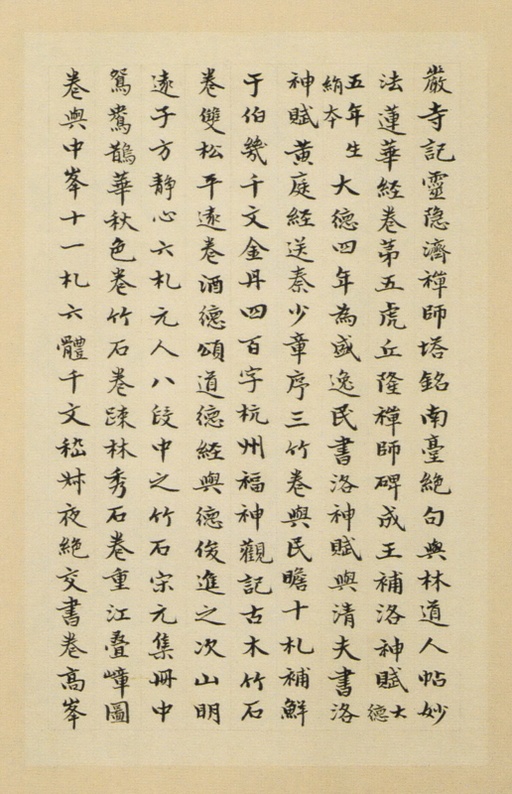 嚴寺記靈隐濟禅師塔銘南臺絶句與林道人帖妙
法蓮華經卷苐五虎丘隆禅師碑成王補洛神賦大德
五年生絹本大德四年為盛逸民書洛神賦與清夫書洛
神賦黄庭經送秦少章序三竹卷與民瞻十札補鮮
于伯幾千文金丹四百字杭州福神觀記古木竹石
卷雙松平遠卷酒德頌道德經與德俊進之次山明
遠子方静心六札元人八段中之竹石宋元集冊中
鴛鴦鵲華秋色卷竹石卷踈林秀石卷重江疊嶂圖
卷與中峯十一札六體千文嵇叔夜絶交書卷高峯